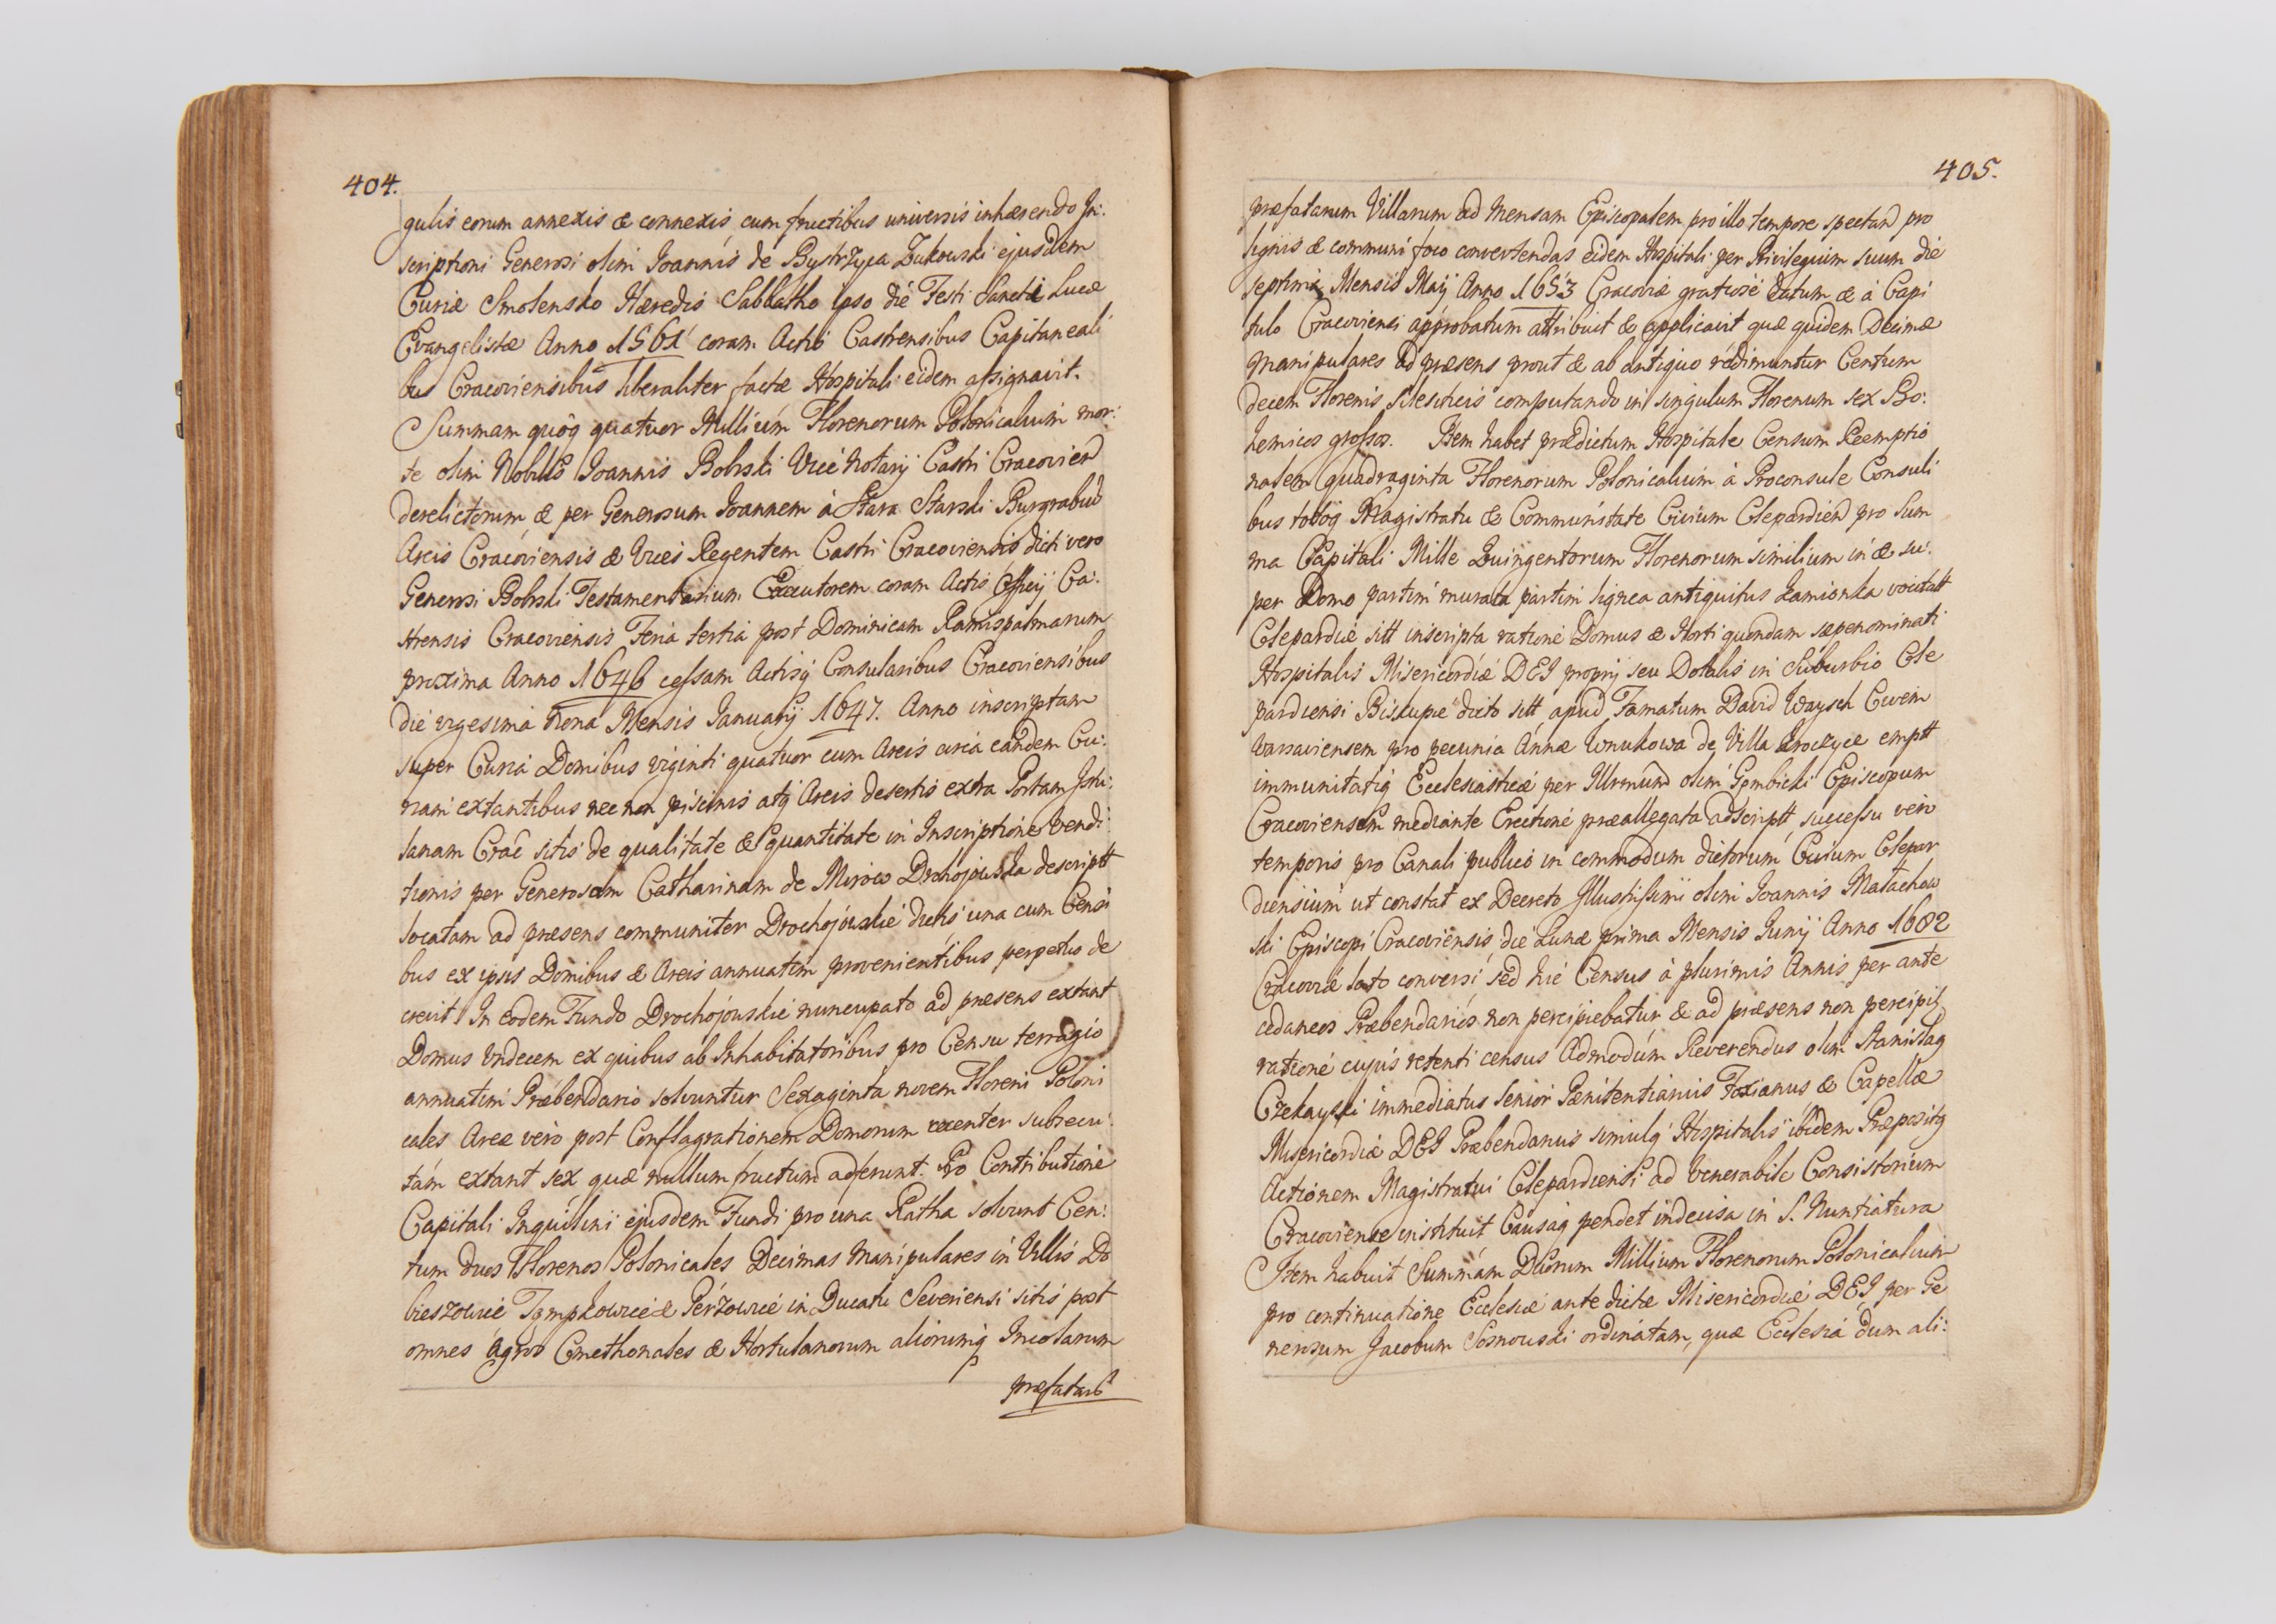 404.
gulis eorum annexis & connexis, cum fructibus universis inhærendo In:
scriptioni Generosi olim Joannis de Bystrzyca Zukowski ejusdem
Curiæ Smolensko Hæredis Sabbatho ipso die Festi Sancti Lucæ
Evangelistæ Anno 1561 coram Actis Castrensibus Capitaneali
bus Cracoviensibus liberaliter factæ Hospitali eidem assignavit.
Summam quoq quatuor Millium Florenorum Polonicalium mor:
te olim Nobilis Joannis Bobrski Vice Notarij Castri Cracovien
derelictorum & per Generosum Joannem à Stara Starski Burgrabiu
Arcis Cracoviensis & Vices Regentem Castri Cracoviensis dicti vero
Generosi Bobrski Testamentarium Executorem coram Actis Officij Ca:
strensis Cracoviensis Feria tertia post Dominicam Ramispalmarum
proxima Anno 1646 cessam Actisq Consularibus Cracoviensibus
die vigesima nona Mensis Januarij 1647. Anno inscriptam
super Curia Domibus viginti quatuor cum Areis circa eandem Cu:
riam extantibus nec non piscinis atq Areis desertis extra Portam Istu:
lanam Crac sitis de qualitate & quantitate in Inscriptione vendi
tionis per Generosam Catharinam de Mirow Drohojowska descriptt
locatam ad præsens communiter Drochojowskie dictis una cum Censi
bus ex ipsis Domibus & Areis annuatim provenientibus perpetuo de
crevit In eodem Fundo Drochojowskie nuncupato ad præsens extant
Domus Undecem ex quibus ab Inhabitatoribus pro Censu terragio
annuatim Præbendario solvuntur Sexaginta novem Floreni Poloni
cales Areæ vero post Conflagrationem Domorum recenter subsecu:
tam extant sex quæ nullum fructum adferunt. Pro Contributione
Capitali Inquilini ejusdem Fundi pro una Ratha solvunt Cen:
tum duos Florenos Polonicales Decimas Manipulares in Villis Do
bieszowice Tąmpkowice & Perzowice in Ducatu Severiensi sitis post
omnes Agros Cmethonales & Hortulanorum aliorumq Incolarum
præfatar
405.
præfatarum Villarum ad Mensam Episcopalem pro illo tempore spectan pro
lignis & communi foco convertendas eidem Hospitali per Privilegium suum die
septima Mensis Maij Anno 1653 Cracoviæ gratiose datum & à Capi
tulo Cracoviensi approbatum attribuit & applicavit quæ quidem Decimæ
Manipulares ad præsens prout & ab antiquo redimuntur Centum
decem Florenis Silesiticis computando in singulum Florenum sex Bo:
hemicos grossos. Item habet prædictum Hospitale Censum Reemptio
nalem quadraginta Florenorum Polonicalium à Proconsule Consuli
bus totoq Magistratu & Communitate Civium Cleparđien pro Sum
ma Capitali Mille Quingentorum Florenorum similium in & su:
per Domo partim murata partim lignea antiquitus Kamionka vocitatt
Clepardiæ sitt inscripta ratione Domus & Horti quondam sæpenominati
Hospitalis Misericordiæ DEI proprij seu Dotalis in Suburbio Cle
pardiensi Biskupie dicto sitt apud Famatum David Waysch Civem
Varsaviensem pro pecunia Annæ Wnukowa de Villa Krockyce emptt
immunitatiq Ecclesiasticæ per Illrmum olim Gembicki Episcopum
Cracoviensem mediante Erectione præallegata adscriptt successu vero
temporis pro Canali publico in commodum dictorum Civium Clepar
diensium ut constat ex Decreto Illustrissimi olim Joannis Małachow
ski Episcopi Cracoviensis die Lunæ prima Mensis Junij Anno 1682
Cracoviæ lato conversi, sed hic Census à plurimis Annis per ante
cedaneos Præbendarios non percipiebatur & ad præsens non percipit
ratione cujus retenti census Admodum Reverendus olim Stanislaq
Czekayski immediatus Senior Pænitentiarius Foxianus & Capellæ
Misericordiæ DEI Præbendarius simulq Hospitalis ibidem Præpositq
Actionem Magistratui Clepardiensi ad Venerabile Consistorium
Cracoviense instituit Causaq pendet indecisa in S. Nuntiatura
Item habuit Summam Duorum Millium Florenorum Polonicalium
pro continuatione Ecclesiæ ante dictæ Misericordiæ DEI per Ge
nerosum Jacobum Sosnowski ordinatam, quæ Ecclesia dum ali: